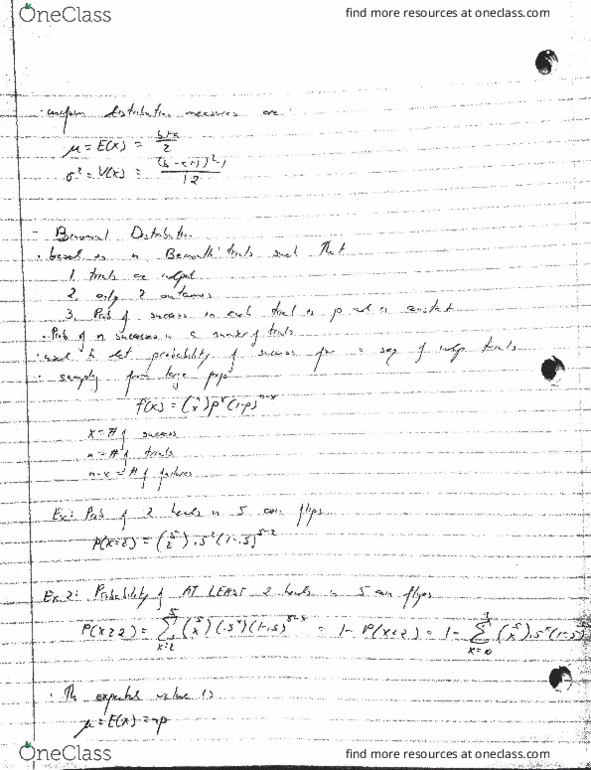 OneClass
find more resources at oneclass.com
· uniform distribution measures are
μ = E(x) = b+a / 2
σ² = V(x) = (b-a+1)²-1 / 12
- Binomial Distribution
· based on n Bernoulli trials such that
1. trials are indep
2. only 2 outcomes
3. Prob of success in each trial is p and is constant
· Prob of n successes in a number of trials
· used to det probability of success for a seq of indep trials
· sampling from large pops
f(x) = (n x) p^x (1-p)^n-x
x = # of success
n = # of trials
n-x = # of failures
Ex: Prob of 2 heads in 5 coin flips
P(x=2) = (5 2) .5² (1-.5)^5-2
Ex 2: Probability of AT LEAST 2 heads in 5 coin flips
P(x≥2) = Σ x=2 5 (5 x) (.5^x) (1-.5)^5-x = 1 - P(x<2) = 1 - Σ x=0 1 (5 x) .5^x (1-.5)
· The expected value is
μ = E(x) = np
OneClass
find more resources at oneclass.com